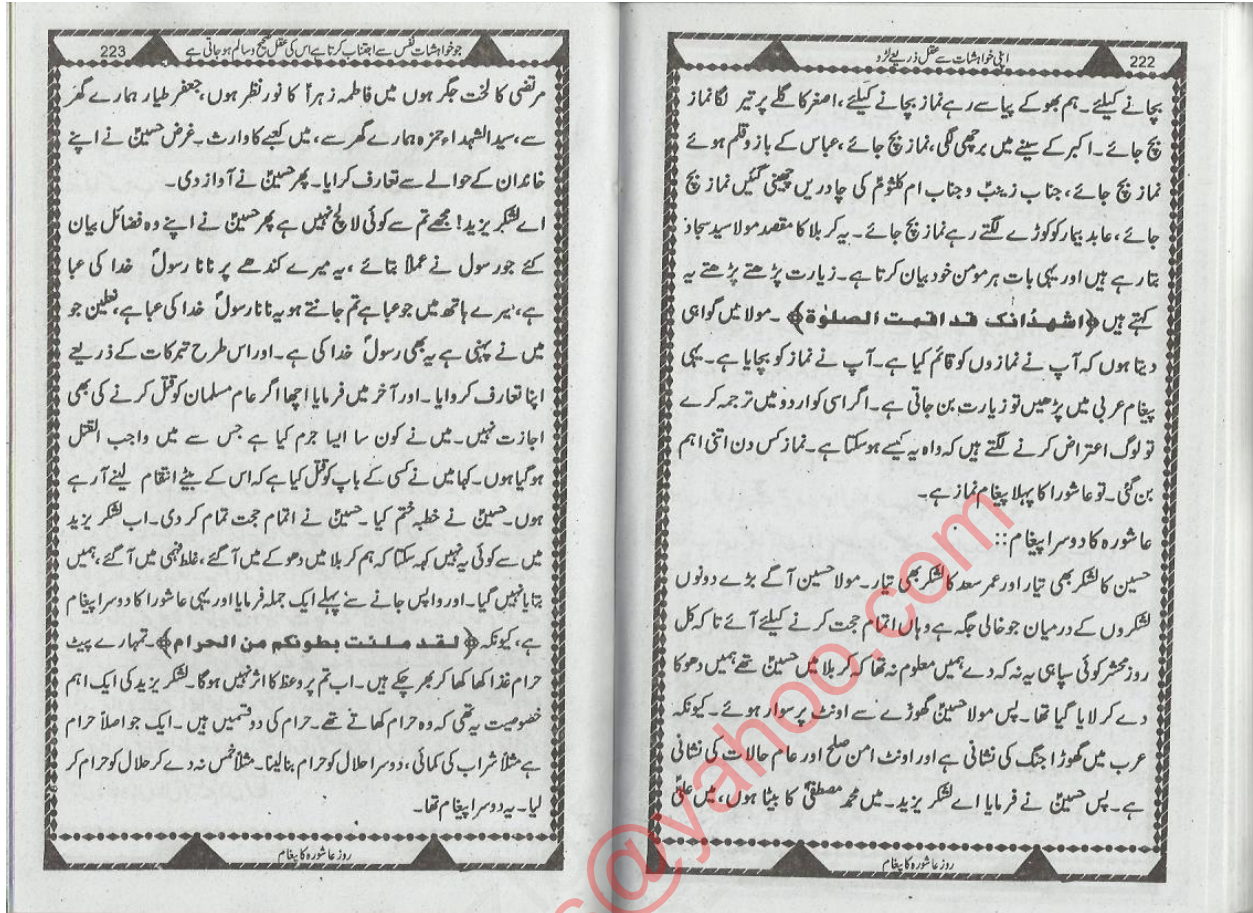 222
اپنی خواہشات سے عقل ذریعے لڑو
بچانے کیلئے۔ ہم بھوکے پیاسے رہے نماز بچانے کیلئے، اصغر کا گلے پر تیر لگا نماز
بچ جائے۔ اکبر کے سینے میں برچھی لگی، نماز بچ جائے، عباس کے بازو قلم ہوئے
نماز بچ جائے، جناب زینبؑ و جناب ام کلثومؑ کی چادریں چھینی گئیں نماز بچ
جائے، عابد بیمار کو کوڑے لگتے رہے نماز بچ جائے۔ یہ کربلا کا مقصد مولا سید سجاد
بتا رہے ہیں اور یہی بات ہر مومن خود بیان کرتا ہے۔ زیارت پڑھتے پڑھتے یہ
کہتے ہیں ﴿اشھدُ انک قد اقمت الصلوٰۃ﴾ ۔ مولا میں گواہی
دیتا ہوں کہ آپ نے نمازوں کو قائم کیا ہے۔ آپ نے نماز کو بچایا ہے۔ یہی
پیغام عربی میں پڑھیں تو زیارت بن جاتی ہے۔ اگر اسی کو اردو میں ترجمہ کرے
تو لوگ اعتراض کرنے لگتے ہیں کہ واہ یہ کیسے ہوسکتا ہے۔ نماز کس دن اتنی اہم
بن گئی۔ تو عاشورا کا پہلا پیغام نماز ہے۔
عاشورہ کا دوسرا پیغام::
حسین کا لشکر بھی تیار اور عمر سعد کا لشکر بھی تیار۔ مولا حسین آگے بڑے دونوں
لشکروں کے درمیان جو خالی جگہ ہے وہاں اتمام حجت کرنے کیلئے آئے تا کہ کل
روز محشر کوئی سپاہی یہ نہ کہ دے ہمیں معلوم نہ تھا کہ کربلا میں حسینؑ تھے ہمیں دھوکا
دے کر لایا گیا تھا۔ پس مولا حسینؑ گھوڑے سے اونٹ پر سوار ہوئے۔ کیونکہ
عرب میں گھوڑا جنگ کی نشانی ہے اور اونٹ امن صلح اور عام حالات کی نشانی
ہے۔ پس حسینؑ نے فرمایا اے لشکر یزید۔ میں محمد مصطفیٰؐ کا بیٹا ہوں، میں علیؑ
روز عاشورہ کا پیغام
جو خواہشات نفس سے اجتناب کرتا ہے اس کی عقل صحیح و سالم ہو جاتی ہے
223
مرتضی کا لخت جگر ہوں میں فاطمہ زہراؑ کا نور نظر ہوں، جعفر طیار ہمارے گھر
سے، سید الشہداء حمزہ ہمارے گھر سے، میں کعبے کا وارث۔ غرض حسینؑ نے اپنے
خاندان کے حوالے سے تعارف کرایا۔ پھر حسینؑ نے آواز دی۔
اے لشکر یزید! مجھے تم سے کوئی لالچ نہیں ہے پھر حسینؑ نے اپنے وہ فضائل بیان
کئے جو رسول نے عملاً بتائے، یہ میرے کندھے پر نانا رسولؐ خدا کی عبا
ہے، میرے ہاتھ میں جو عبا ہے تم جانتے ہو یہ نانا رسولؐ خدا کی عبا ہے، نعلین جو
میں نے پہنی ہے یہ بھی رسولؐ خدا کی ہے۔ اور اس طرح تبرکات کے ذریعے
اپنا تعارف کروایا۔ اور آخر میں فرمایا اچھا اگر عام مسلمان کو قتل کرنے کی بھی
اجازت نہیں۔ میں نے کون سا ایسا جرم کیا ہے جس سے میں واجب القتل
ہوگیا ہوں۔ کہا میں نے کسی کے باپ کو قتل کیا ہے کہ اس کے بیٹے انتقام لینے آرہے
ہوں۔ حسینؑ نے خطبہ ختم کیا۔ حسینؑ نے اتمام حجت تمام کر دی۔ اب لشکر یزید
میں سے کوئی یہ نہیں کہہ سکتا کہ ہم کربلا میں دھوکے میں آگئے، غلط فہمی میں آگئے، ہمیں
بتایا نہیں گیا۔ اور واپس جانے سے پہلے ایک جملہ فرمایا اور یہی عاشورا کا دوسرا پیغام
ہے، کیونکہ ﴿لقد ملئت بطونکم من الحرام﴾۔ تمہارے پیٹ
حرام غذا کھا کھا کر بھر چکے ہیں۔ اب تم پر وعظ کا اثر نہیں ہوگا۔ لشکر یزید کی ایک اہم
خصوصیت یہ تھی کہ وہ حرام کھاتے تھے۔ حرام کی دو قسمیں ہیں۔ ایک جو اصلاً حرام
ہے مثلاً شراب کی کمائی، دوسرا حلال کو حرام بنالینا۔ مثلاً خمس نہ دے کر حلال کو حرام کر
لیا۔ یہ دوسرا پیغام تھا۔
روز عاشورہ کا پیغام
s@yahoo.com